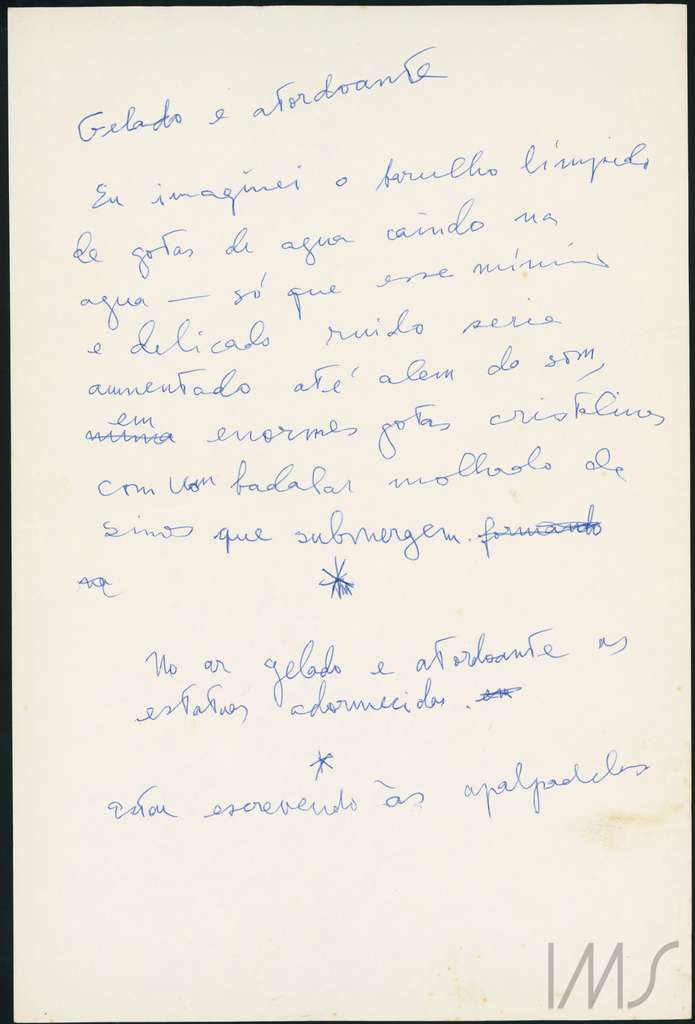 Gelado e atordoante
Eu imaginei o barulho límpido
de gotas de agua caindo na
agua — só que esse mínimo
e delicado ruido seria
aumentado até alem do som,
em
enormes gotas cristalinas
com um badalar molhado de
sinos que submergem. formando
na
*
No ar gelado e atordoante as
estatuas adormecidas. em
*
Estou escrevendo às apalpadelas
IMS